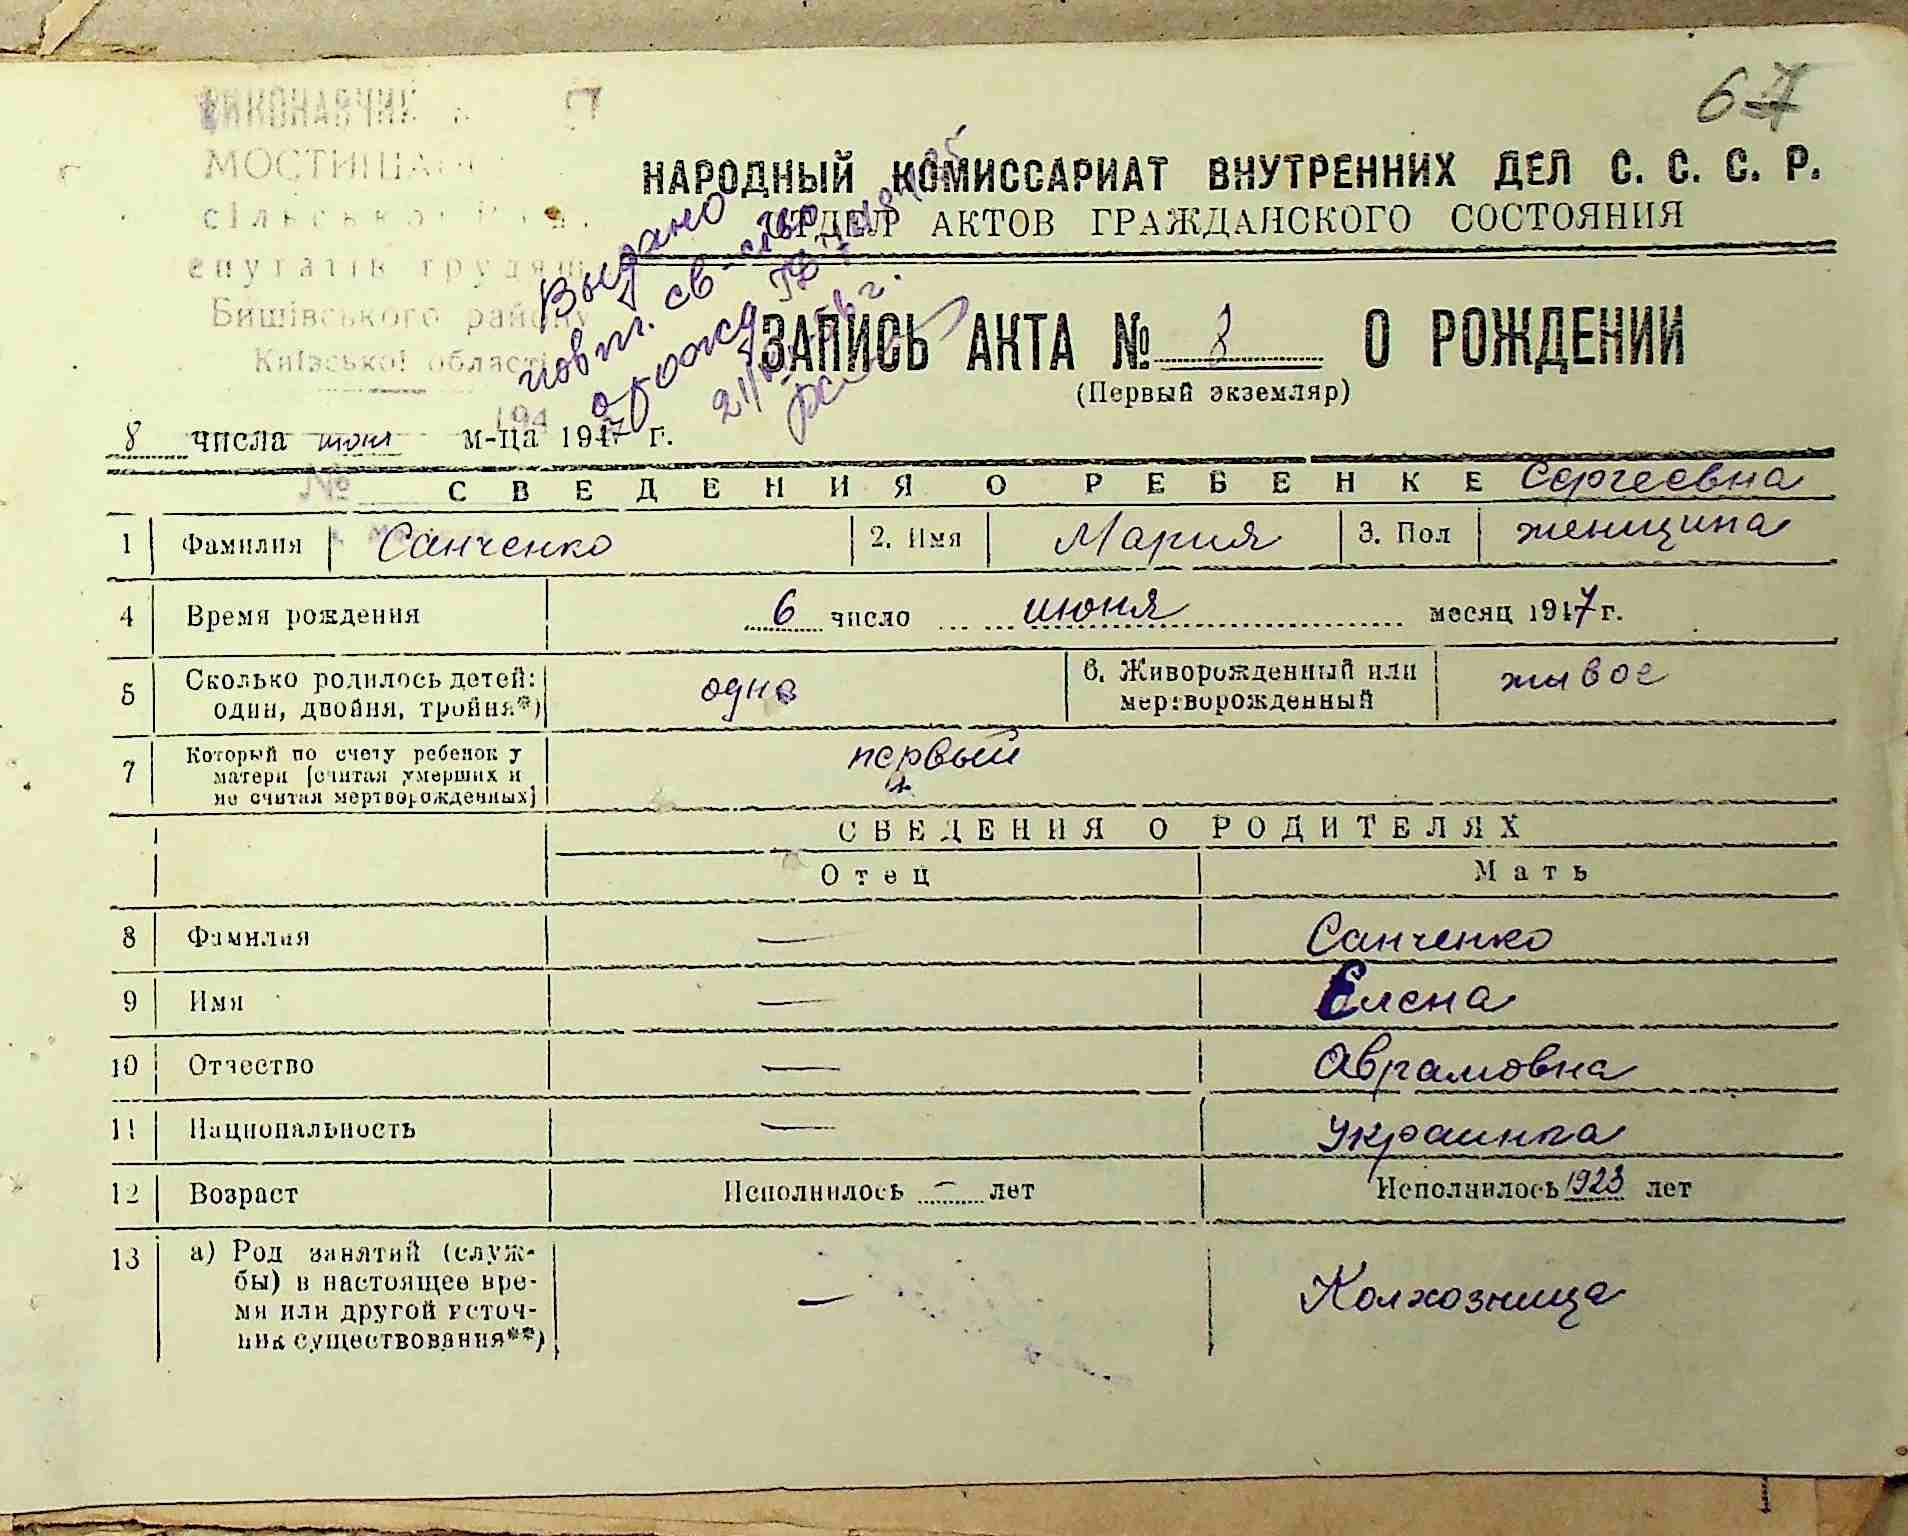 67
МОСТИЩАН
сільської
депутатів трудящ
Бишівського району
Київської області
194
№
НАРОДНЫЙ КОМИССАРИАТ ВНУТРЕННИХ ДЕЛ С. С. С. Р.
ОТДЕЛ АКТОВ ГРАЖДАНСКОГО СОСТОЯНИЯ
Выдано
повт. св-ство
о рожд
ЗАПИСЬ АКТА № 8 О РОЖДЕНИИ
(Первый экземпляр)
8 числа июня м-ца 1947 г.
СВЕДЕНИЯ О РЕБЕНКЕ Сергеевна
1 Фамилия Санченко 2. Имя Мария 3. Пол женщина
4 Время рождения 6 число июня месяц 1947 г.
5 Сколько родилось детей: один, двойня, тройня*) одна 6. Живорожденный или мертворожденный живое
7 Который по счету ребенок у матери [считая умерших и не считая мертворожденных] первый
СВЕДЕНИЯ О РОДИТЕЛЯХ
Отец Мать
8 Фамилия — Санченко
9 Имя — Елена
10 Отчество — Аврамовна
11 Национальность — украинка
12 Возраст Исполнилось — лет Исполнилось 1923 лет
13 а) Род занятий (служ-
бы) в настоящее вре-
мя или другой источ-
ник существования**) — Колхозница